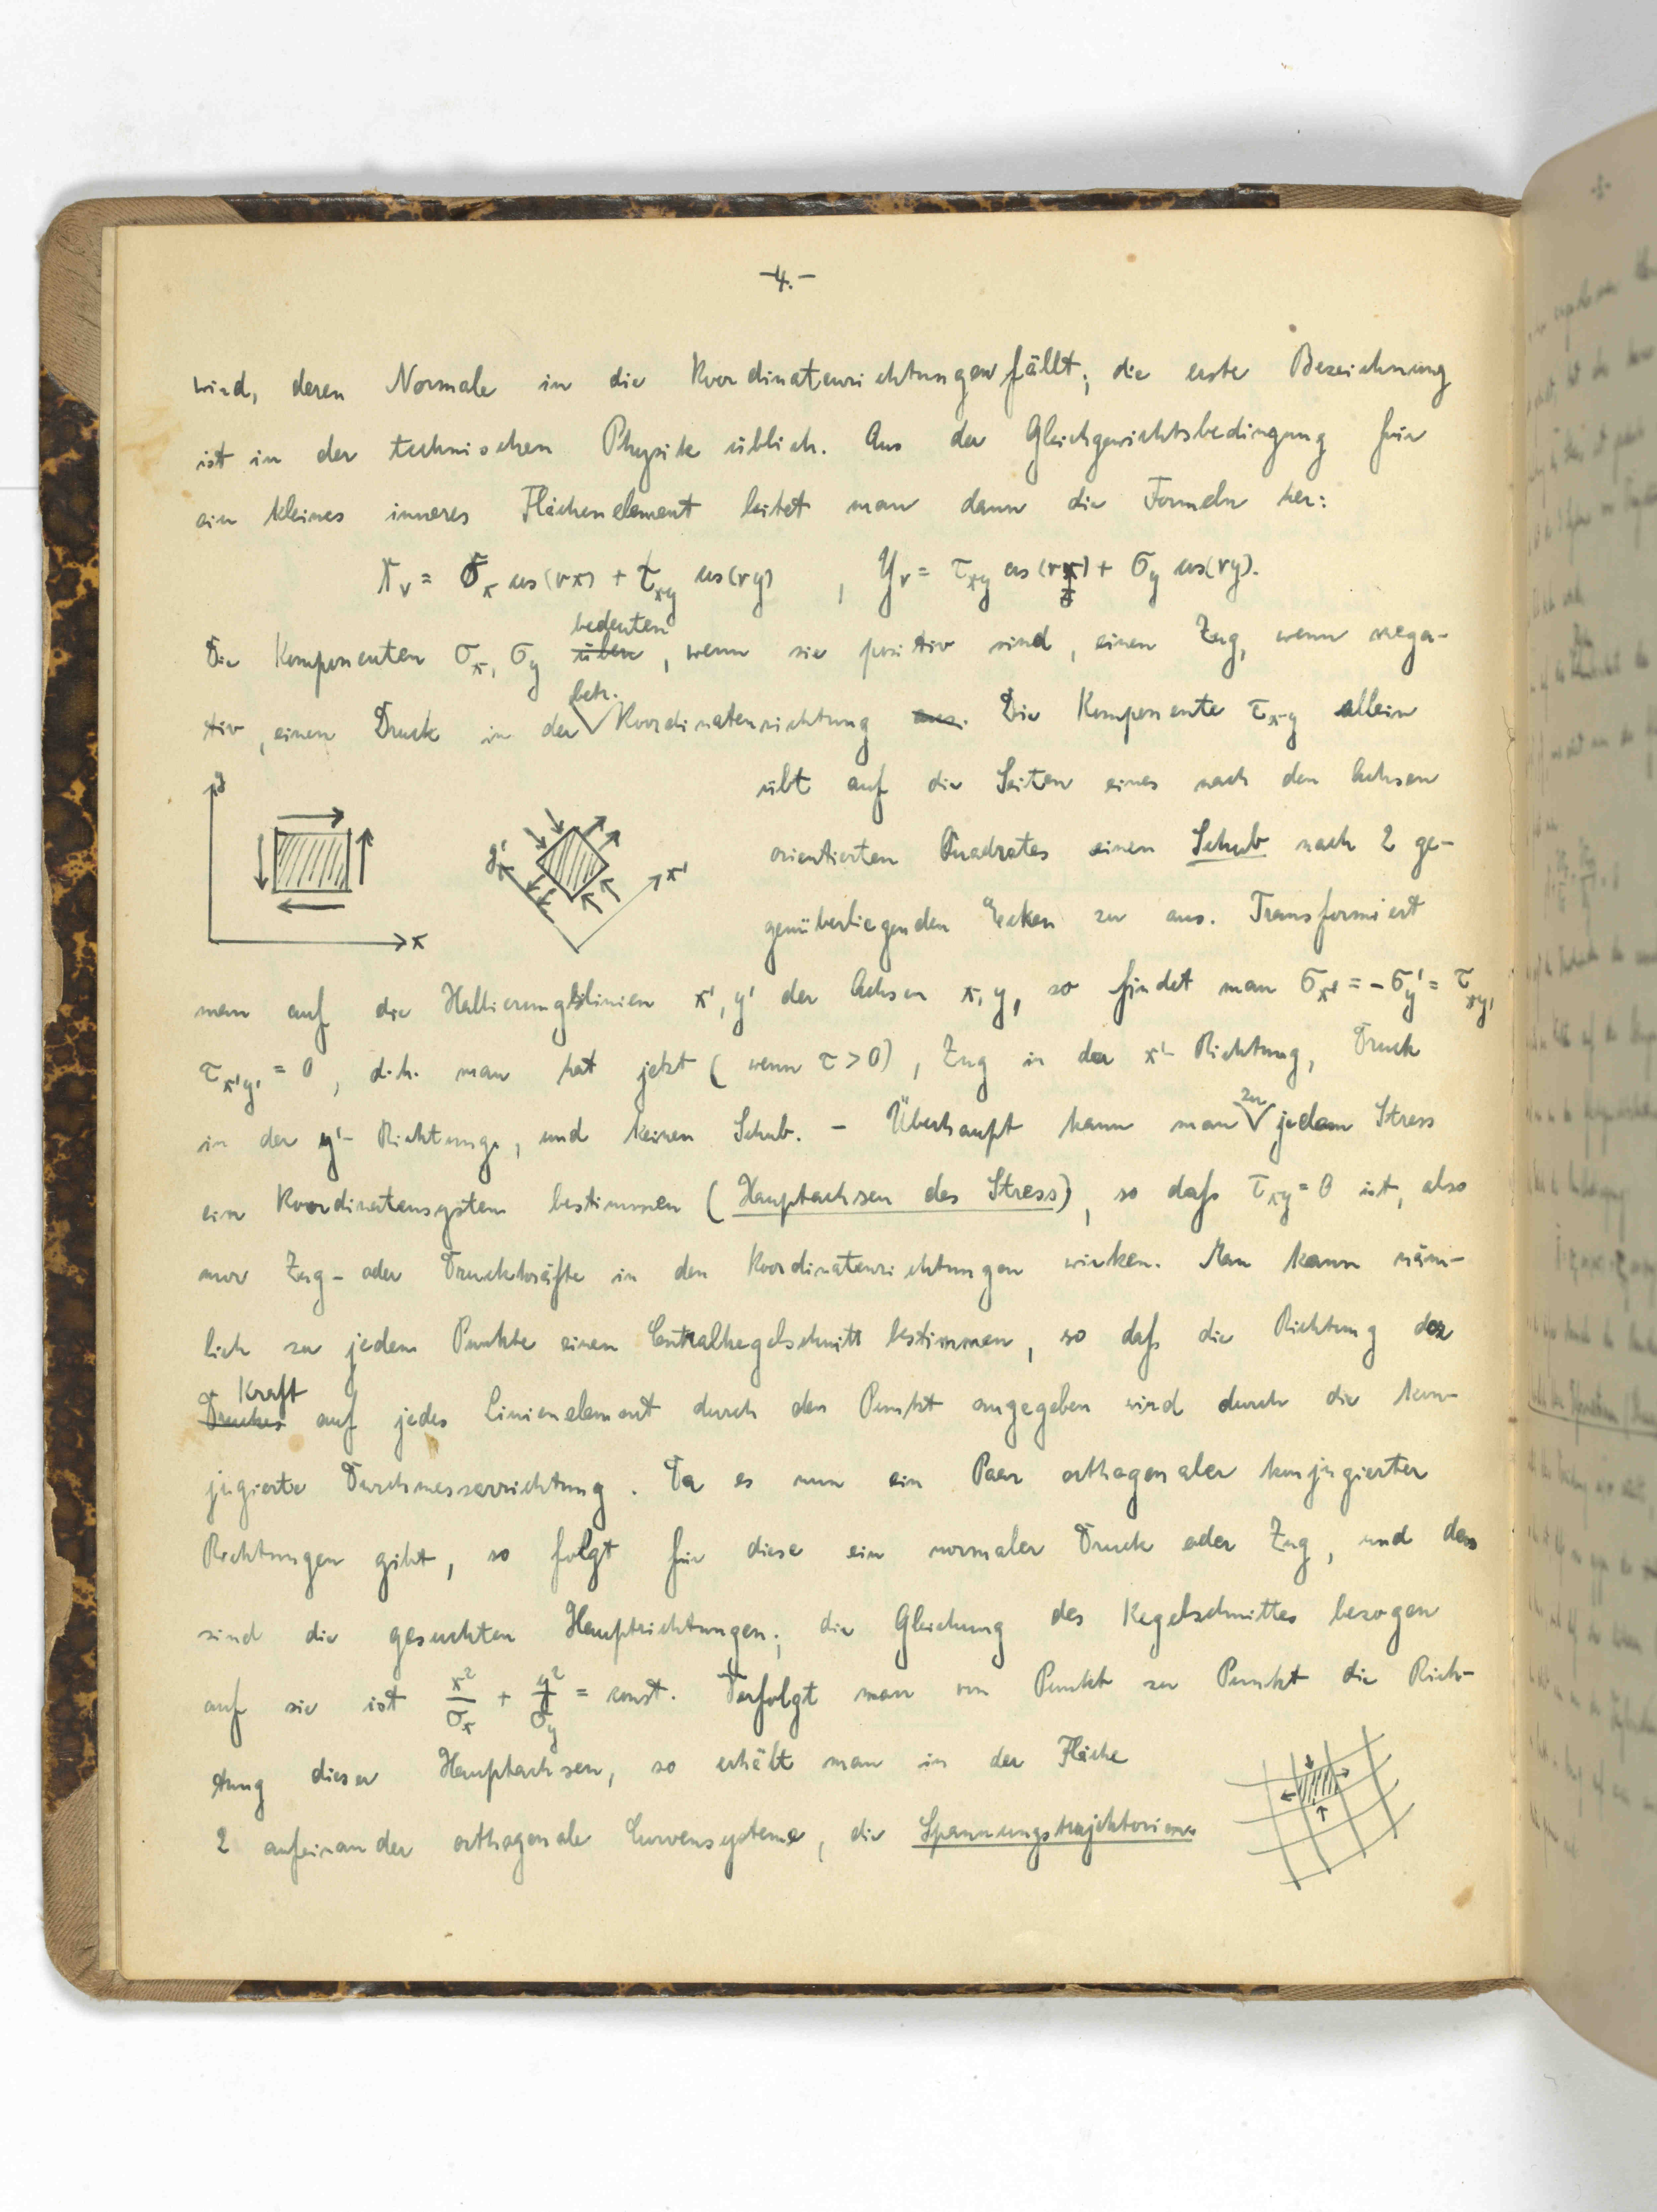 -4.-
wird, deren Normale in die Koordinatenrichtungen fällt; die erste Bezeichnung
ist in der technischen Physik üblich. Aus der Gleichgewichtsbedingung für
ein kleines inneres Flächenelement leitet man dann die Formeln her:
X_ν = σ_x cos(νx) + τ_xy cos(νy) , Y_ν = τ_xy cos(νx) + σ_y cos(νy).
bedeuten
Die Komponenten σ_x, σ_y üben, wenn sie positiv sind, einen Zug, wenn nega-
betr.
tiv, einen Druck in der Koordinatenrichtung aus. Die Komponente τ_xy allein
übt auf die Seiten eines nach den Achsen
orientierten Quadrates einen Schub nach 2 ge-
genüberliegenden Ecken zu aus. Transformiert
y
x
y'
x'
man auf die Halbierungslinien x', y' der Achsen x, y, so findet man σ_x' = -σ_y' = τ_xy,
τ_x'y' = 0, d.h. man hat jetzt (wenn τ > 0), Zug in der x'- Richtung, Druck
zu
in der y'- Richtung, und keinen Schub. - Überhaupt kann man jedem Stress
ein Koordinatensystem bestimmen (Hauptachsen des Stress), so daß τ_xy = 0 ist, also
nur Zug- oder Druckkräfte in den Koordinatenrichtungen wirken. Man kann näm-
lich zu jedem Punkte einen Centralkegelschnitt bestimmen, so daß die Richtung der
Kraft
Druckes auf jedes Linienelement durch den Punkt angegeben wird durch die kon-
jugierte Durchmesserrichtung. Da es nun ein Paar orthogonaler konjugierter
Richtungen gibt, so folgt für diese ein normaler Druck oder Zug, und das
sind die gesuchten Hauptrichtungen; die Gleichung des Kegelschnittes bezogen
auf sie ist x²/σ_x + y²/σ_y = const. Verfolgt man von Punkt zu Punkt die Rich-
tung dieser Hauptachsen, so erhält man in der Fläche
2 aufeinander orthogonale Curvensysteme, die Spannungstrajektorien